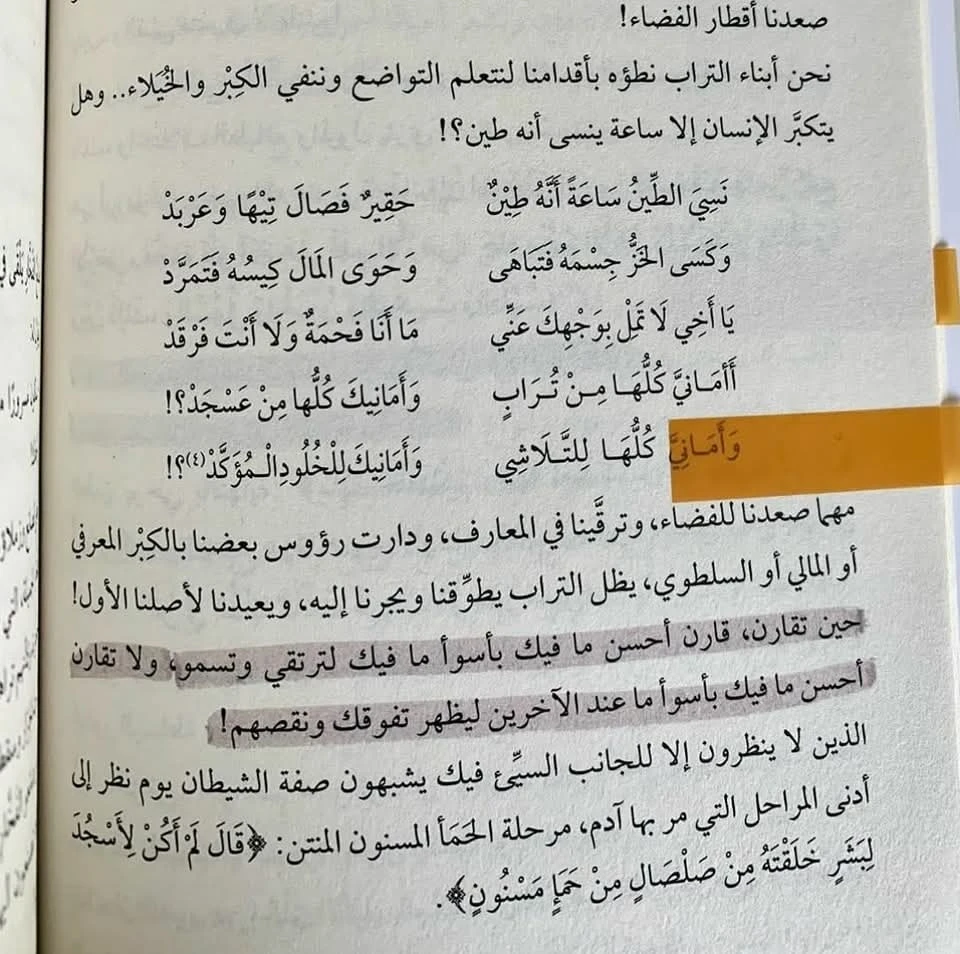 صعدنا أقطار الفضاء!
نحن أبناء التراب نطؤه بأقدامنا لنتعلم التواضع وننفي الكِبْر والخُيَلاء.. وهل
يتكبَّر الإنسان إلا ساعة ينسى أنه طين؟!
نَسِيَ الطِّينُ سَاعَةً أَنَّهُ طِيْنٌ حَقِيرٌ فَصَالَ تِيْهًا وَعَرْبَدْ
وَكَسَى الخَزُّ جِسْمَهُ فَتَبَاهَى وَحَوَى المَالَ كِيسُهُ فَتَمَرَّدْ
يَا أَخِي لَا تَمِلْ بِوَجْهِكَ عَنِّي مَا أَنَا فَحْمَةٌ وَلَا أَنْتَ فَرْقَدْ
أَأَمَانيَّ كُلُّهَا مِنْ تُرَابٍ وَأَمَانِيكَ كُلُّها مِنْ عَسْجَدْ؟!
وَأَمَانِيَّ كُلُّهَا لِلتَّلَاشِي وَأَمَانِيكَ لِلْخُلُودِ الْمُؤَكَّدْ(٤)؟!
مهما صعدنا للفضاء، وترقَّينا في المعارف، ودارت رؤوس بعضنا بالكِبْر المعرفي
أو المالي أو السلطوي، يظل التراب يطوِّقنا ويجرنا إليه، ويعيدنا لأصلنا الأول!
حين تقارن، قارن أحسن ما فيك بأسوأ ما فيك لترتقي وتسمو، ولا تقارن
أحسن ما فيك بأسوأ ما عند الآخرين ليظهر تفوقك ونقصهم!
الذين لا ينظرون إلا للجانب السيِّئ فيك يشبهون صفة الشيطان يوم نظر إلى
أدنى المراحل التي مر بها آدم، مرحلة الحَمَأ المسنون المنتن: ﴿قَالَ لَمْ أَكُنْ لِأَسْجُدَ
لِبَشَرٍ خَلَقْتَهُ مِنْ صَلْصَالٍ مِنْ حَمَإٍ مَسْنُونٍ﴾.